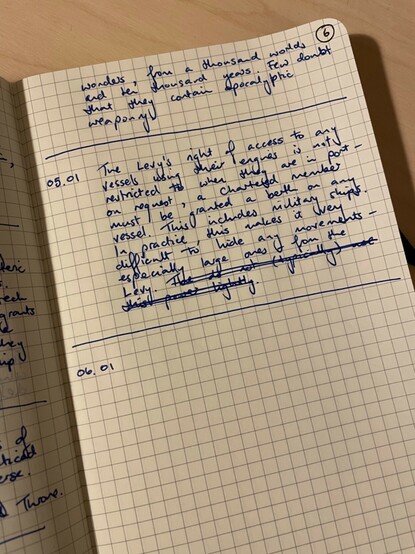 6
wonders, from a thousand worlds
and ten thousand years. Few doubt
that they contain apocalyptic
weaponry.
05.01 The Levy's right of access to any
vessels using their engines is not
restricted to when they are in port -
on request, a Chartered member
must be granted a berth on any
vessel. This includes military ships.
In practice, this makes it very
difficult to hide any movements -
especially large ones from the
Levy. The do not (typically) use
this power lightly.
06.01
teric
tech
grants
the
they
hip
s of
ctical
erse.
Twore.